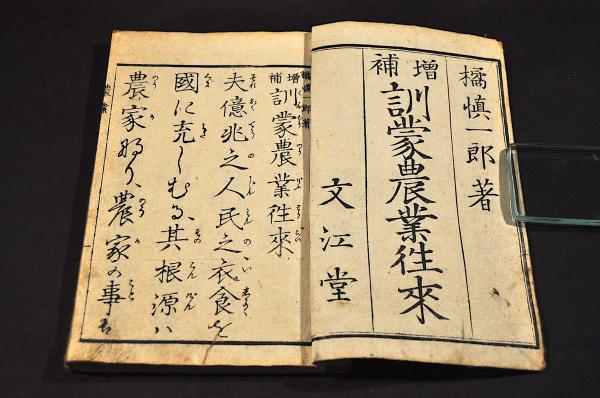 橘慎一郎著
増補 訓蒙農業往來
文江堂
橘慎一郎著
増補 訓蒙農業往來
夫億兆之人民之衣食を
國に充しむる、其根源ハ
農家なり、農家の事
農業